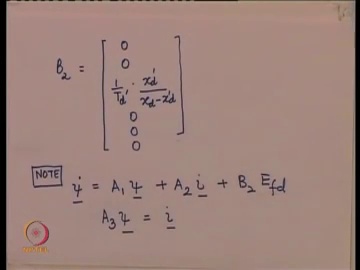 B₂ = [ 0
0
1/T'd · x'd/(xd - x'd)
0
0
0 ]
NOTE ψ̇ = A₁ ψ + A₂ i + B₂ Efd
A₃ ψ = i
NPTEL